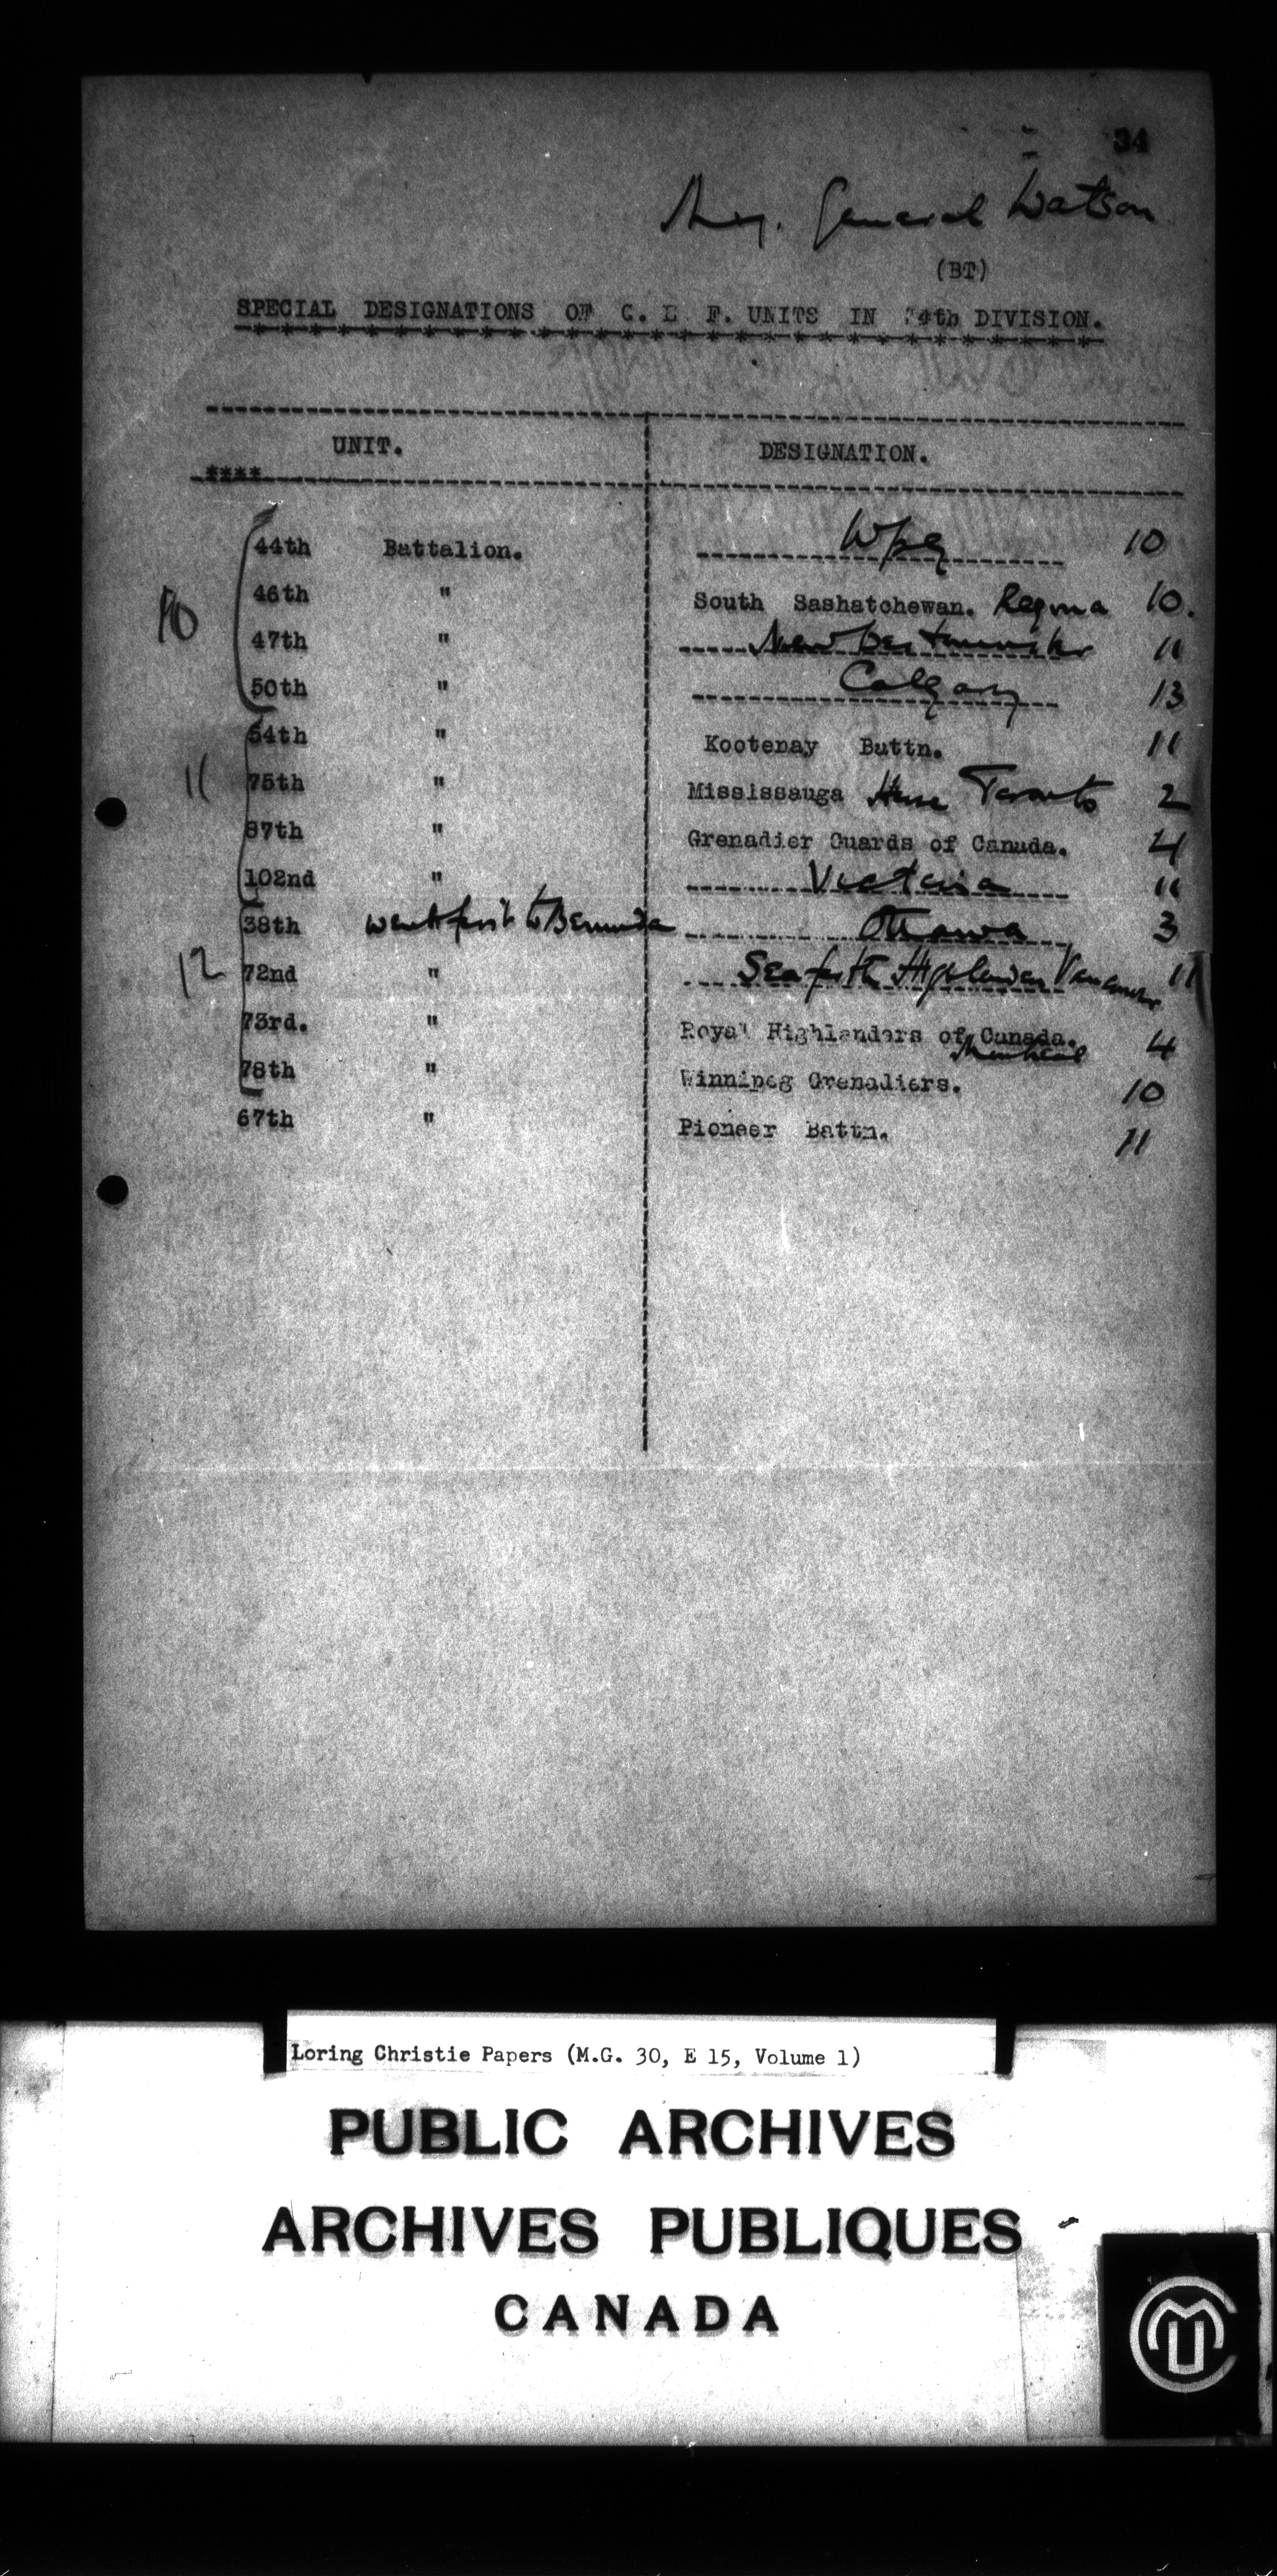 34
Maj. General Watson
(BT)
SPECIAL DESIGNATIONS OF C. E F. UNITS IN 4th DIVISION.
UNIT. DESIGNATION.
****
44th Battalion. Wpeg 10
10
46th " South Sashatchewan. Regina 10.
47th " New Westminster 11
50th " Calgary 13
54th " Kootenay Battn. 11
11 75th " Mississauga Horse Toronto 2
87th " Grenadier Guards of Canada. 4
102nd " Victoria 11
38th went first to Bermuda Ottawa 3
12 72nd " Seaforth Highlanders Vancouver 11
73rd. " Royal Highlanders of Canada. 4
Montreal
78th " Winnipeg Grenadiers. 10
67th " Pioneer Battn. 11
Loring Christie Papers (M.G. 30, E 15, Volume 1)
PUBLIC ARCHIVES
ARCHIVES PUBLIQUES
CANADA